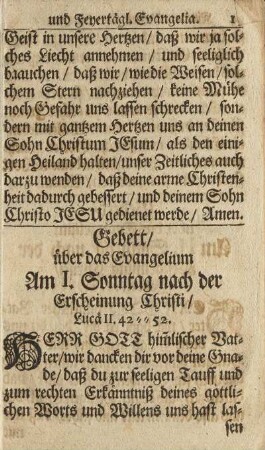 und Feyertägl. Evangelia. 1
Geist in unsere Hertzen/ daß wir ja sol-
ches Liecht annehmen / und seeliglich
brauchen / daß wir / wie die Weisen / sol-
chem Stern nachziehen / keine Mühe
noch Gefahr uns lassen schrecken / son-
dern mit gantzem Hertzen uns an deinen
Sohn Christum JEsum/ als den eini-
gen Heiland halten/unser Zeitliches auch
darzu wenden / daß deine arme Christen-
heit dadurch gebessert / und deinem Sohn
Christo JESU gedienet werde / Amen.
Gebett/
über das Evangelium
Am I. Sonntag nach der
Erscheinung Christi/
Lucä II. 42 ⸗⸗ 52.
HERR GOTT him̃lischer Vat-
ter/wir dancken dir vor deine Gna-
de / daß du zur seeligen Tauff und
zum rechten Erkänntniß deines göttli-
chen Worts und Willens uns hast las-
sen